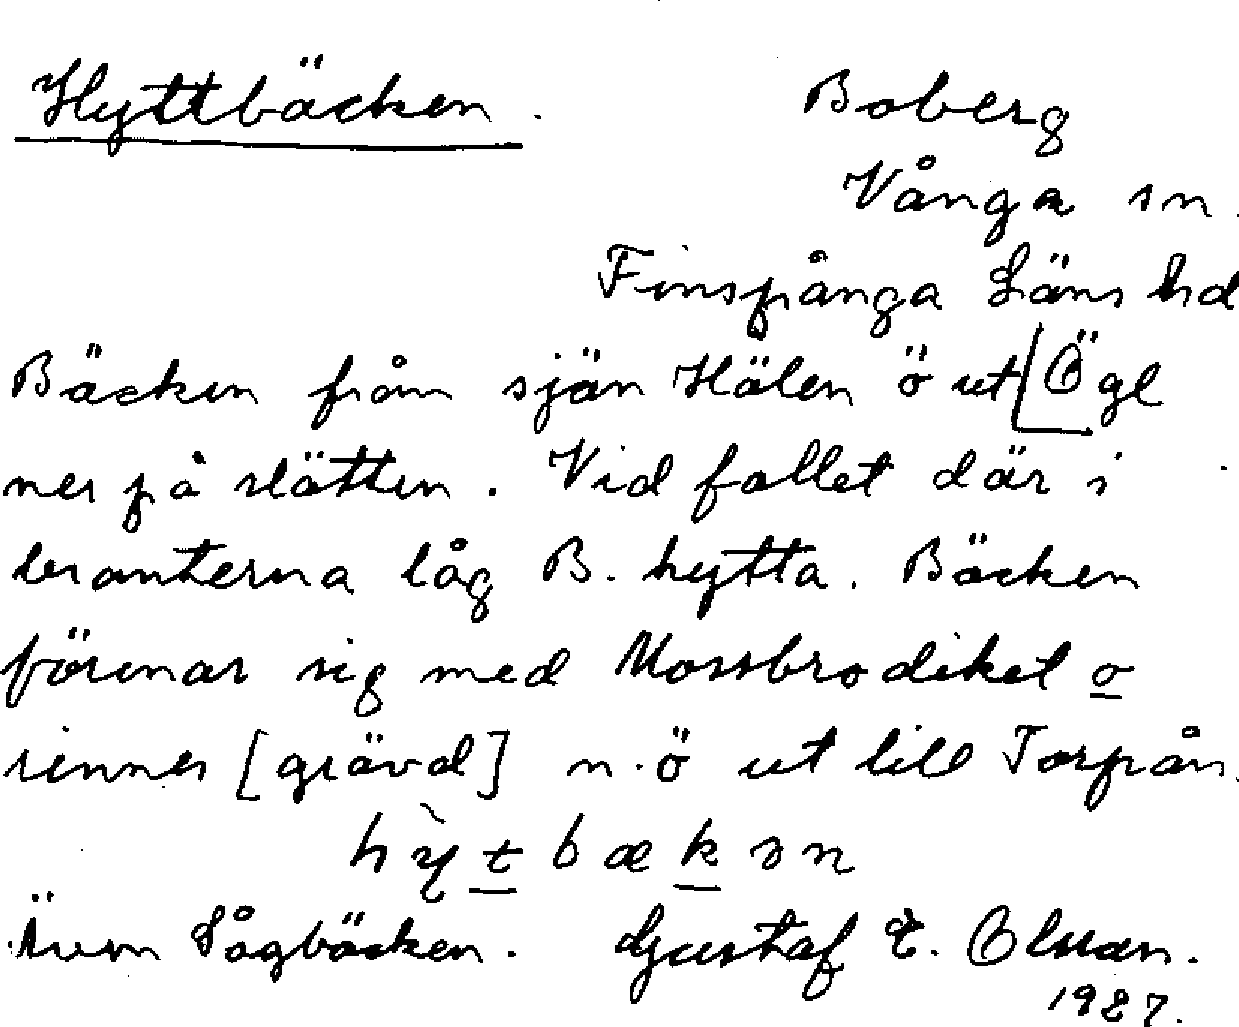 Hyttbäcken.
Boberg
Vånga sn.
Finspånga Läns hd
Ögl
Bäcken från sjön Hälen ö ut
ner på slätten. Vid fallet där i
branterna låg B. hytta. Bäcken
förenar sig med Mossbrodiket o
rinner [grävd] n.ö ut till Torpån.
hỳtbækən
Även Sågbäcken. Gustaf E. Olsson.
1927.